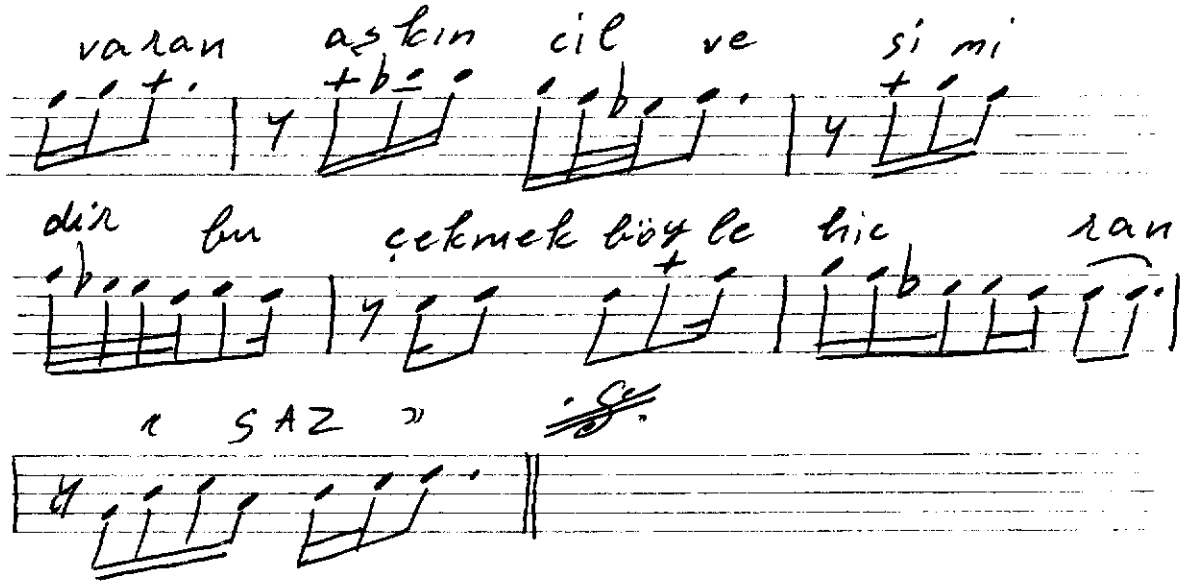 varan aşkın cil ve si mi
dir bu çekmek böyle hic ran
« SAZ »